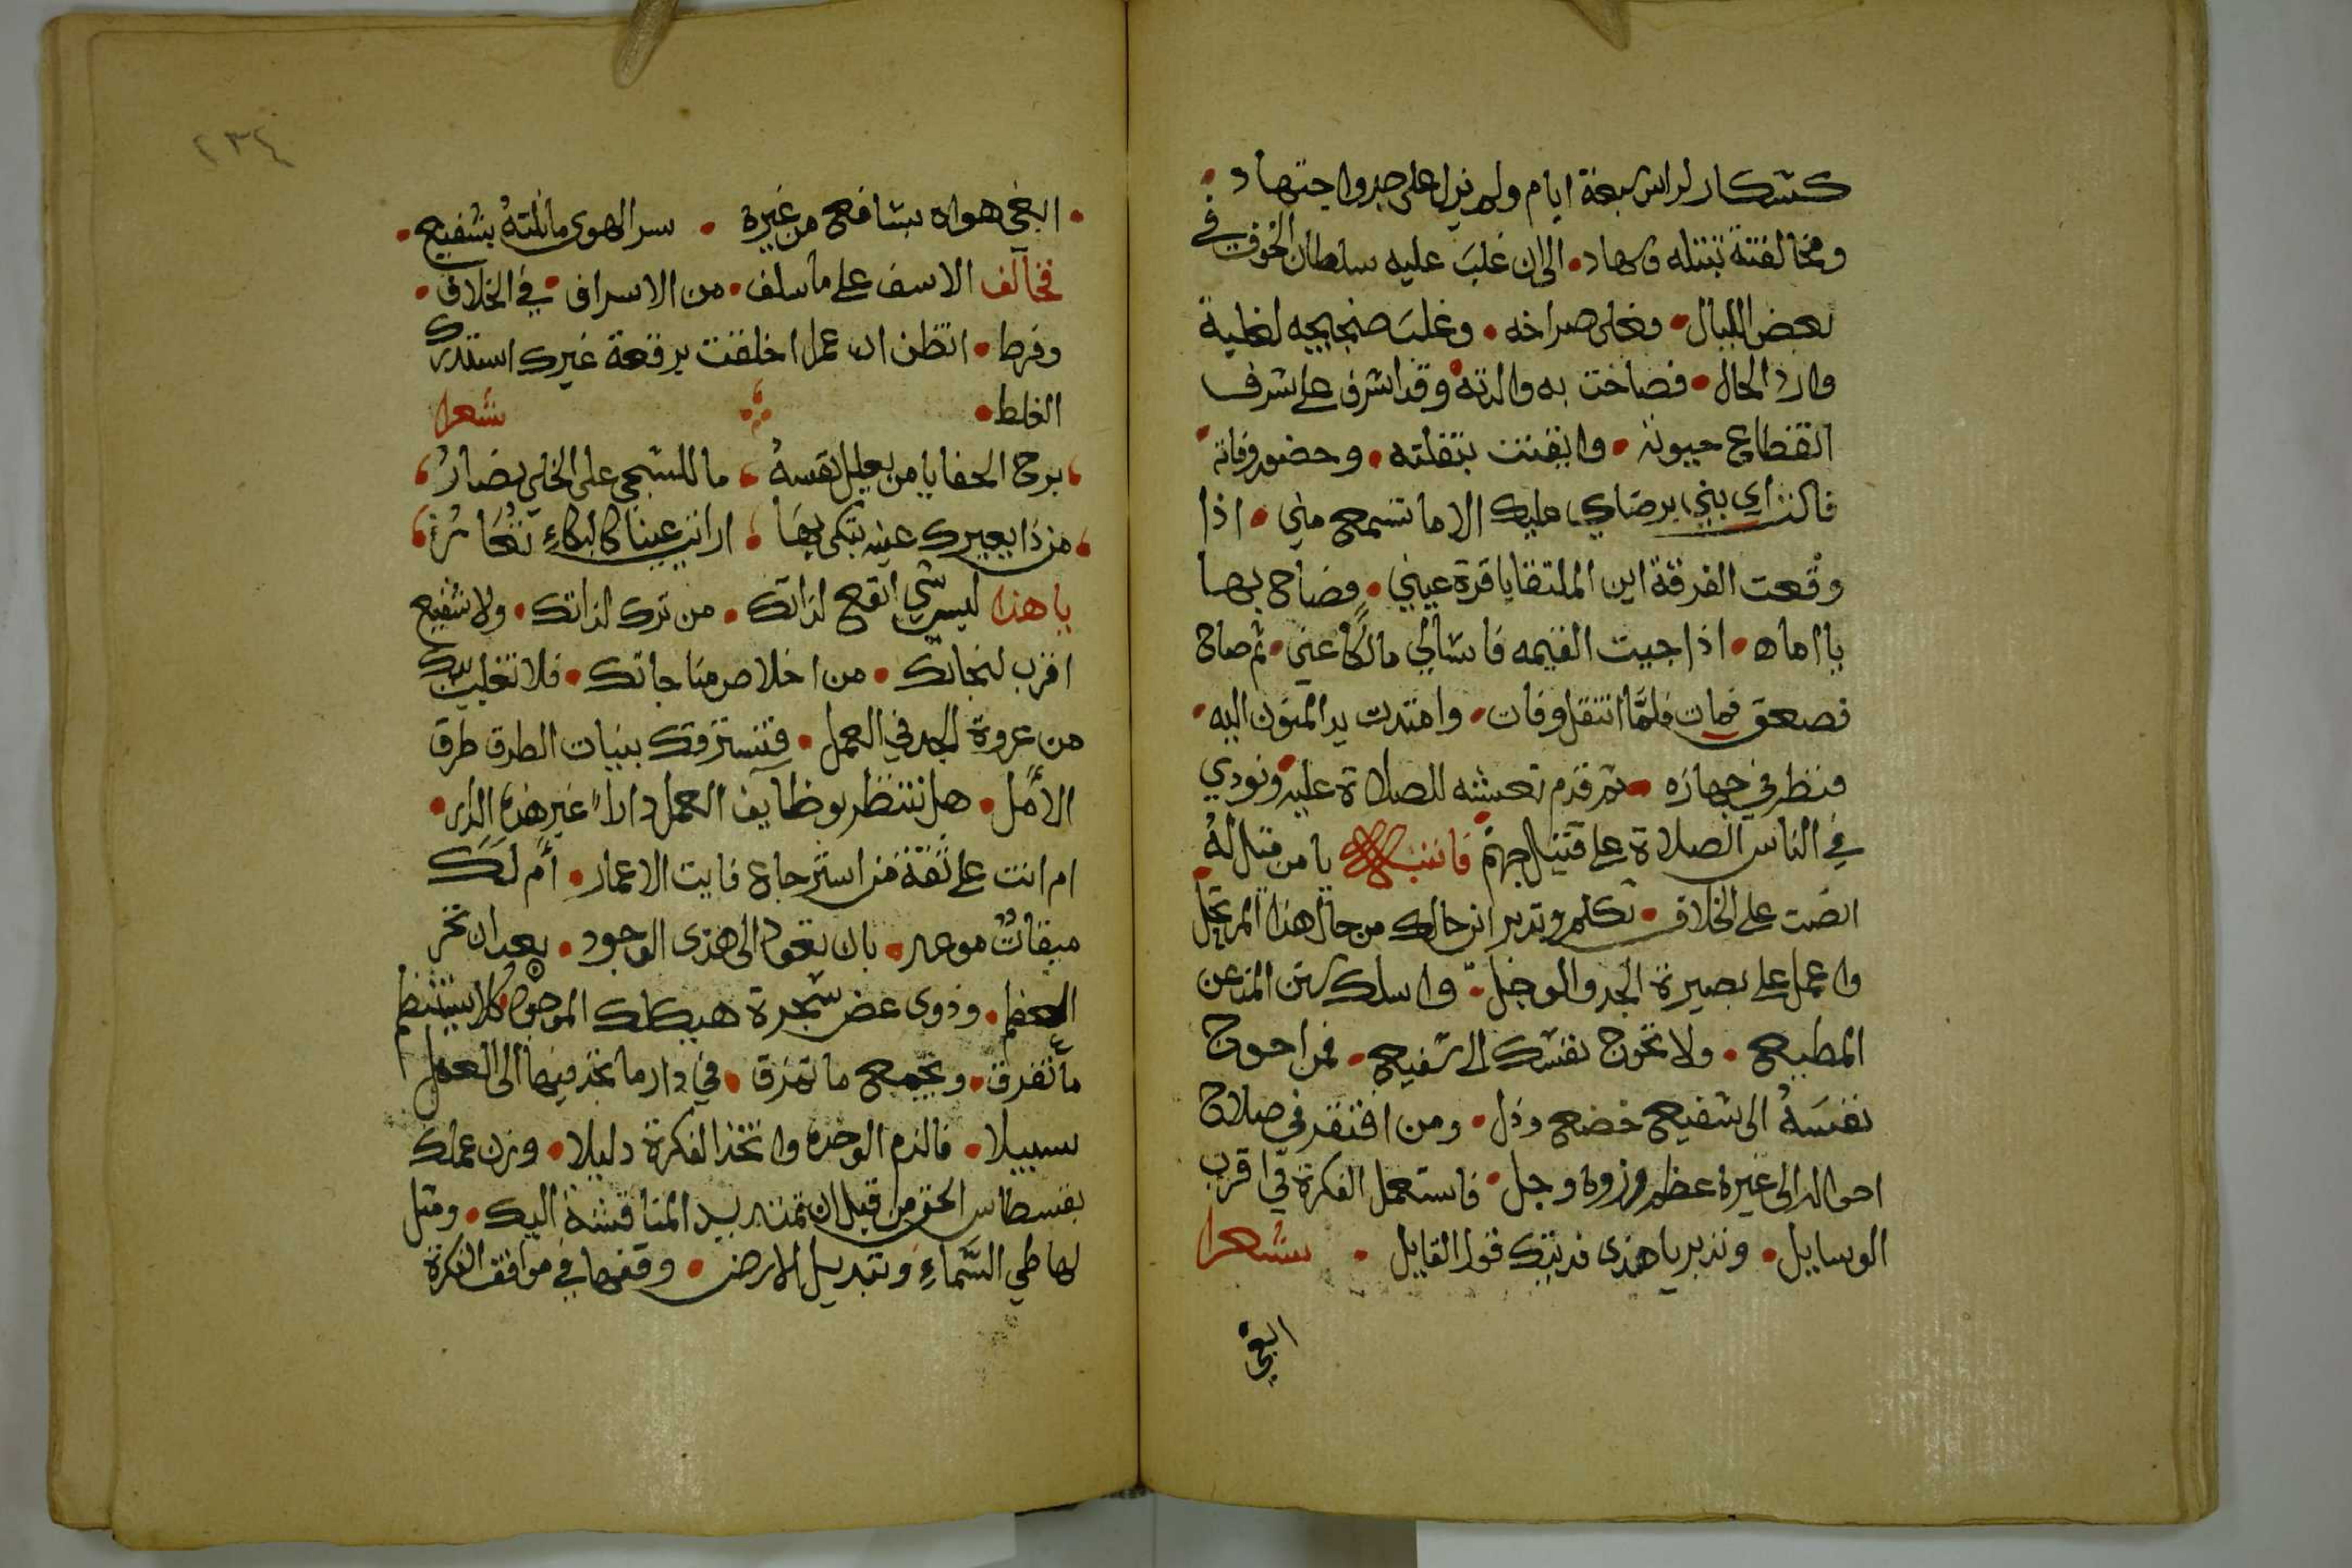 كشكار لراس سبعة ايام ولم نزل على صبر واجتهاد
ومخالفتة تبتله وسهاد • الى ان غلب عليه سلطان الخوف في
بعض الليال • فعلى صراخه • وغلب ضجيجه لغلبة
وارد الحال • فصاحت به والدته • وقد اشرف على شرف
انقطاع حيوته • وايقنت بنقلته • وحضور وفاته
قالت اي بني برضاي عليك الا ما تسمع مني • اذا
وقعت الفرقة اين الملتقا يا قرة عيني • فصاح بها
يا اماه • اذا جيت القيمه فاسالي مالكا عني • ثم صاح
فصعق فمات فلما انتقل وفات • وامتدت يد المنون اليه •
فنظر في جهازه • ثم قدم نعشه للصلاة عليه • ونودي
في الناس الصلاة على قتيل جهنم فانتبه يا من قتاله
انصت على الخلاف • تكلم وتدبر اين حالك من حال هذا المرتحل
واعمل على بصيرة الجد والوجل • واسلك سنن المذعن
المطيع • ولا تحوج نفسك الى شفيع • فمن احوج
نفسه الى شفيع خضع وذل • ومن افتقر في صلاح
احواله الى غيره عظم رزوه وجل • فاستعمل الفكرة في اقرب
الوسايل • وتدبر يا هذى فديتك قول القايل • شعرا
ابغي
٢٣٤
• ابغي هواه بشافع من غيره • سر الهوى ما نلته بشفيع •
فخالف الاسف على ما سلف • من الاسراف • في الخلاف •
وفرط • اتظن ان عملا اخلقت برقعة غيرك استدرك
الغلط • شعرا
برح الحفا يا من يعلل نفسه ما للشجي على الخلي يصار
من ذا يعيرك عينه تبكي بها ارايت عينا كالبكاء تعار
يا هذا ليس شي انفع لذاتك • من ترك لذاتك • ولا شفيع
اقرب لنجاتك • من اخلاص مناجاتك • فلا تخلين يديك
من عروة الجد في العمل • فتسترقك بنيات الطرق طرق
الامل • هل تنتظر بوظايف العمل دارا غير هذه الدار •
ام انت على ثقة من استرجاع فايت الاعمار • ام لك
ميقات موعد • بان تعود الى هذى الوجود • بعد ان نخر
العظم • وذوى غض شجرة هيكلك الموجود كلا سينتظم
ما تفرق • ويجمع ما تمزق • في دار ما تجد فيها الى العمل
سبيلا • فالزم الوحدة واتخذ الفكرة دليلا • وزن عملك
بقسطاس الحق من قبل ان تمتد يد المناقشة اليك • ومثل
لها طي السماء وتبديل الارض • وقفها في مواقف الفكرة